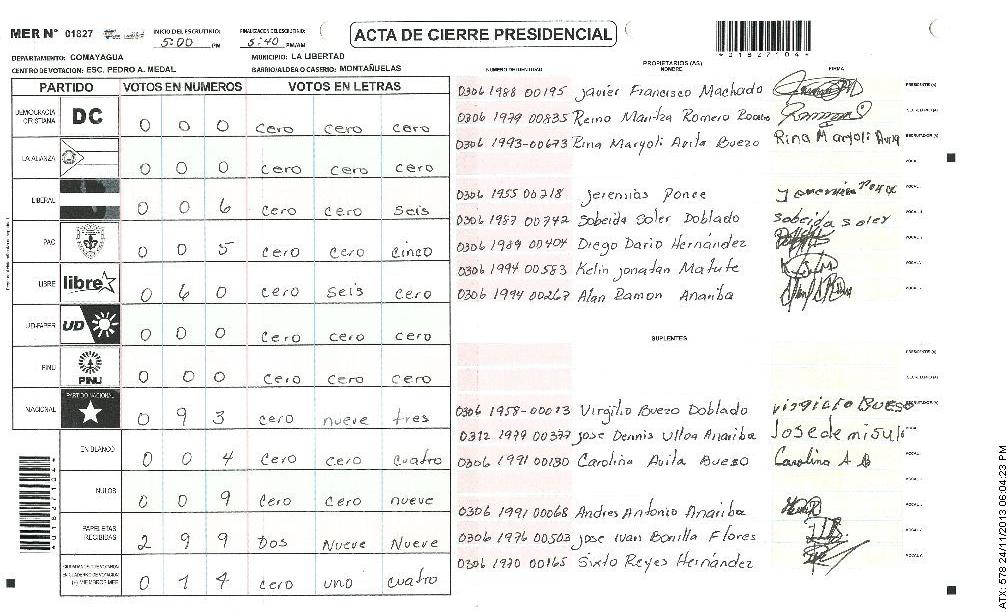 MER N° 01827
INICIO DEL ESCRUTINIO: 5:00 PM
FINALIZACION DEL ESCRUTINIO: 5:40 PM/AM
ACTA DE CIERRE PRESIDENCIAL
*01827104*
DEPARTAMENTO: COMAYAGUA
MUNICIPIO: LA LIBERTAD
CENTRO DE VOTACION: ESC. PEDRO A. MEDAL
BARRIO/ALDEA O CASERIO: MONTAÑUELAS
PARTIDO VOTOS EN NUMEROS VOTOS EN LETRAS
DEMOCRACIA CRISTIANA DC 0 0 0 cero cero cero
LA ALIANZA 0 0 0 cero cero cero
LIBERAL 0 0 6 cero cero seis
PAC 0 0 5 cero cero cinco
LIBRE libre 0 6 0 cero seis cero
UD-FAPER UD 0 0 0 cero cero cero
PINU PINU 0 0 0 cero cero cero
NACIONAL PARTIDO NACIONAL 0 9 3 cero nueve tres
EN BLANCO 0 0 4 cero cero cuatro
NULOS 0 0 9 cero cero nueve
PAPELETAS RECIBIDAS 2 9 9 Dos Nueve Nueve
(+) MIEMBROS MER 0 1 4 cero uno cuatro
NUMERO DE IDENTIDAD PROPIETARIOS (AS) NOMBRE FIRMA
0306 1988 00195 Javier Francisco Machado PRESIDENTE (A)
0306 1979 00835 Reino Maritza Romero SECRETARIO (A)
0306 1993-00673 Rina Maryoli Avila Buezo Rina Maryoli Avila ESCRUTADOR (A)
0306 1955 00718 Jeremias Ponce Jeremias Ponce
0306 1987 00742 Sobeida Soler Doblado sobeida soler
0306 1989 00404 Diego Dario Hernández
0306 1994 00583 Kelin Jonatan Matute
0306 1994 00267 Alan Ramon Anariba
SUPLENTES
PRESIDENTE (A)
SECRETARIO (A)
0306 1958-00013 Virgilio Buezo Doblado Virgilio Bueso ESCRUTADOR (A)
0312 1979 00377 Jose Dennis Ulloa Anariba
0306 1991 00130 Carolina Avila Bueso Carolina A B
0306 1991 00068 Andres Antonio Anariba
0306 1976 00503 Jose Ivan Bonilla Flores
0306 1970 00165 Sixto Reyes Hernández
*01827104*
ATX: 578 24/11/2013 06:04:23 PM